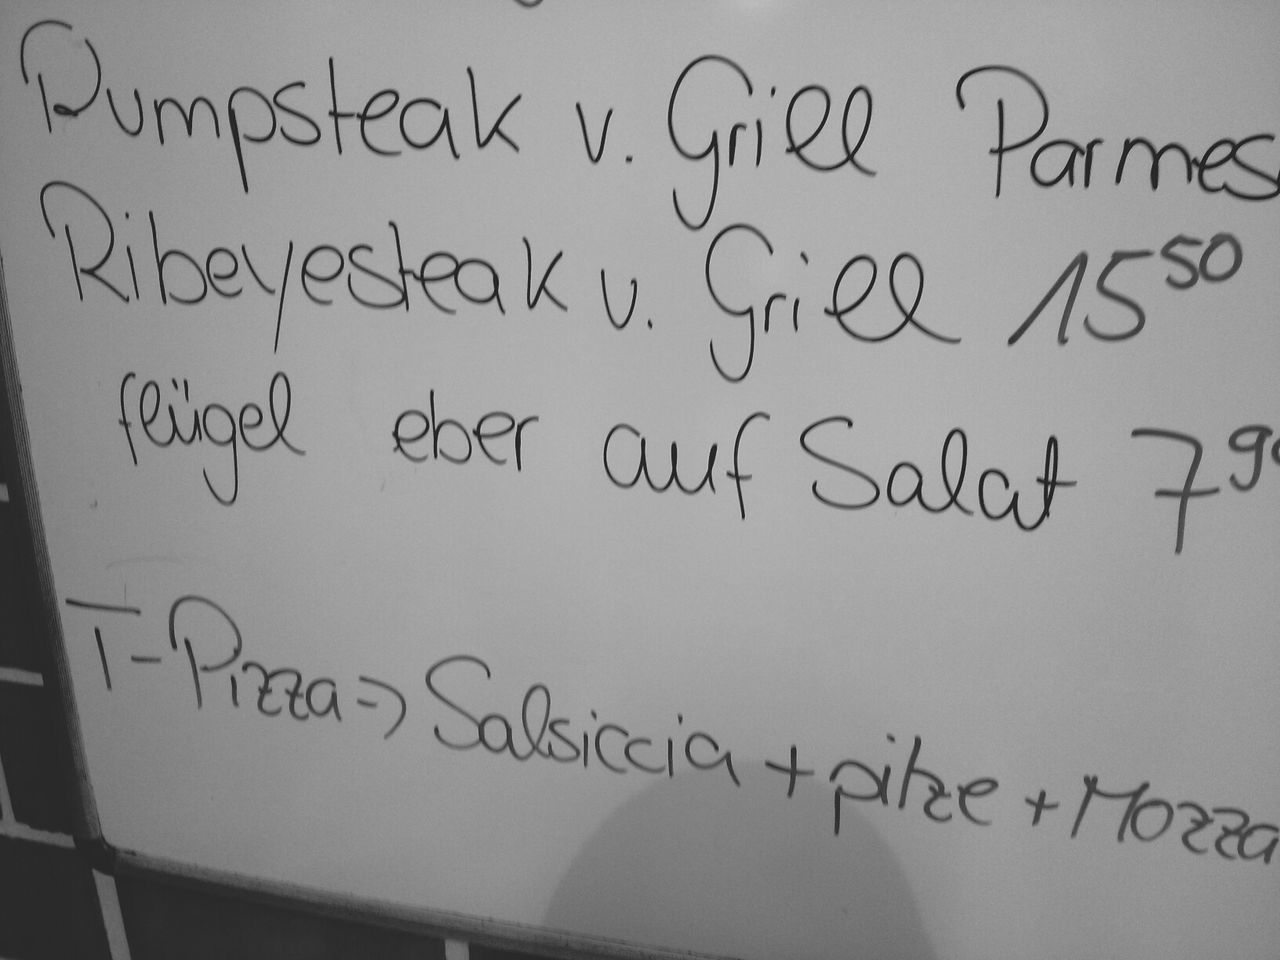 Rumpsteak v. Grill Parmes
Ribeyesteak v. Grill 15 50
flügel eber auf Salat 7 90
T-Pizza => Salsiccia + pilze + Mozza